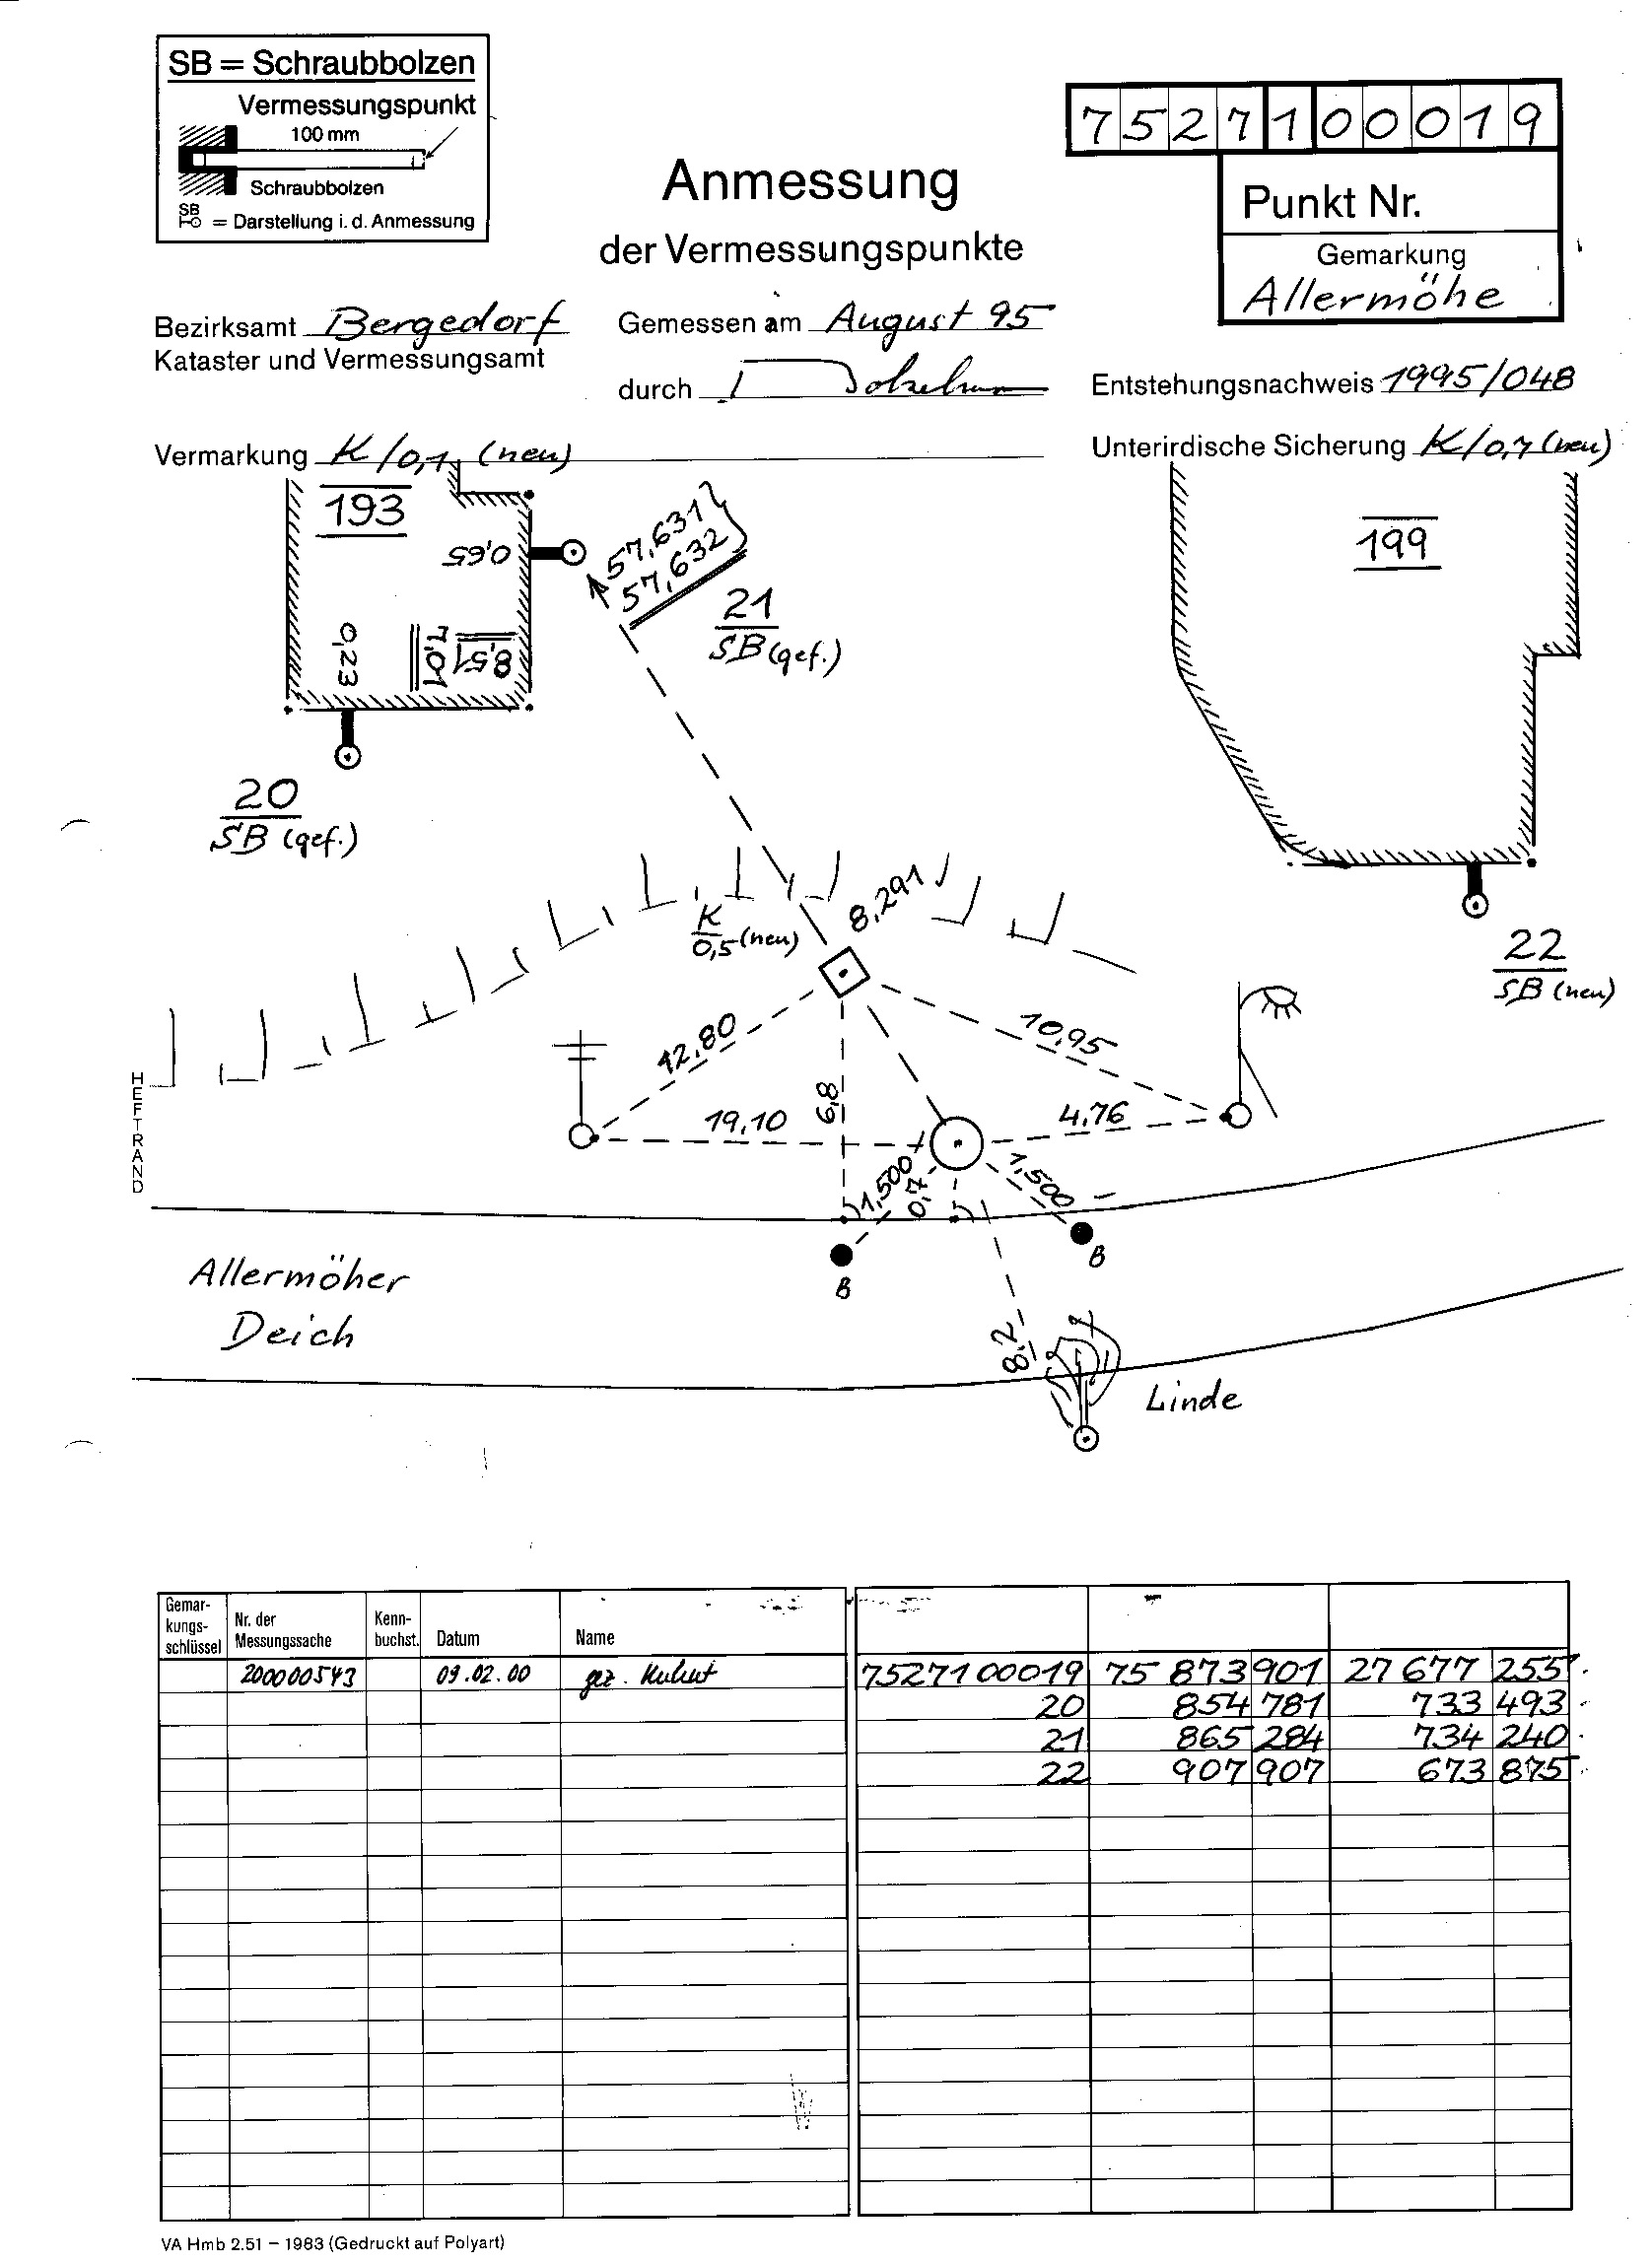 SB = Schraubbolzen
Vermessungspunkt
100 mm
Schraubbolzen
SB
= Darstellung i. d. Anmessung
7527100019
Punkt Nr.
Gemarkung
Allermöhe
Anmessung
der Vermessungspunkte
Bezirksamt Bergedorf
Kataster und Vermessungsamt
Gemessen am August 95
durch
Entstehungsnachweis 1995/048
Vermarkung K/0,1 (neu)
Unterirdische Sicherung K/0,7 (neu)
193
0,65
57,631
57,632
199
21
SB (gef.)
0,23
7,01
8,51
20
SB (gef.)
K
0,5 (neu)
8,291
22
SB (neu)
12,80
10,95
6,8
19,10
4,76
HEFTRAND
1,500
0,7
1,500
B
B
Allermöher
Deich
8,2
Linde
Gemar-
kungs-
schlüssel
Nr. der
Messungssache
Kenn-
buchst.
Datum
Name
200000543 09.02.00 gez. 7527100019 75 873 901 27 677 255
20 854 781 733 493
21 865 284 734 240
22 907 907 673 875
VA Hmb 2.51 – 1983 (Gedruckt auf Polyart)